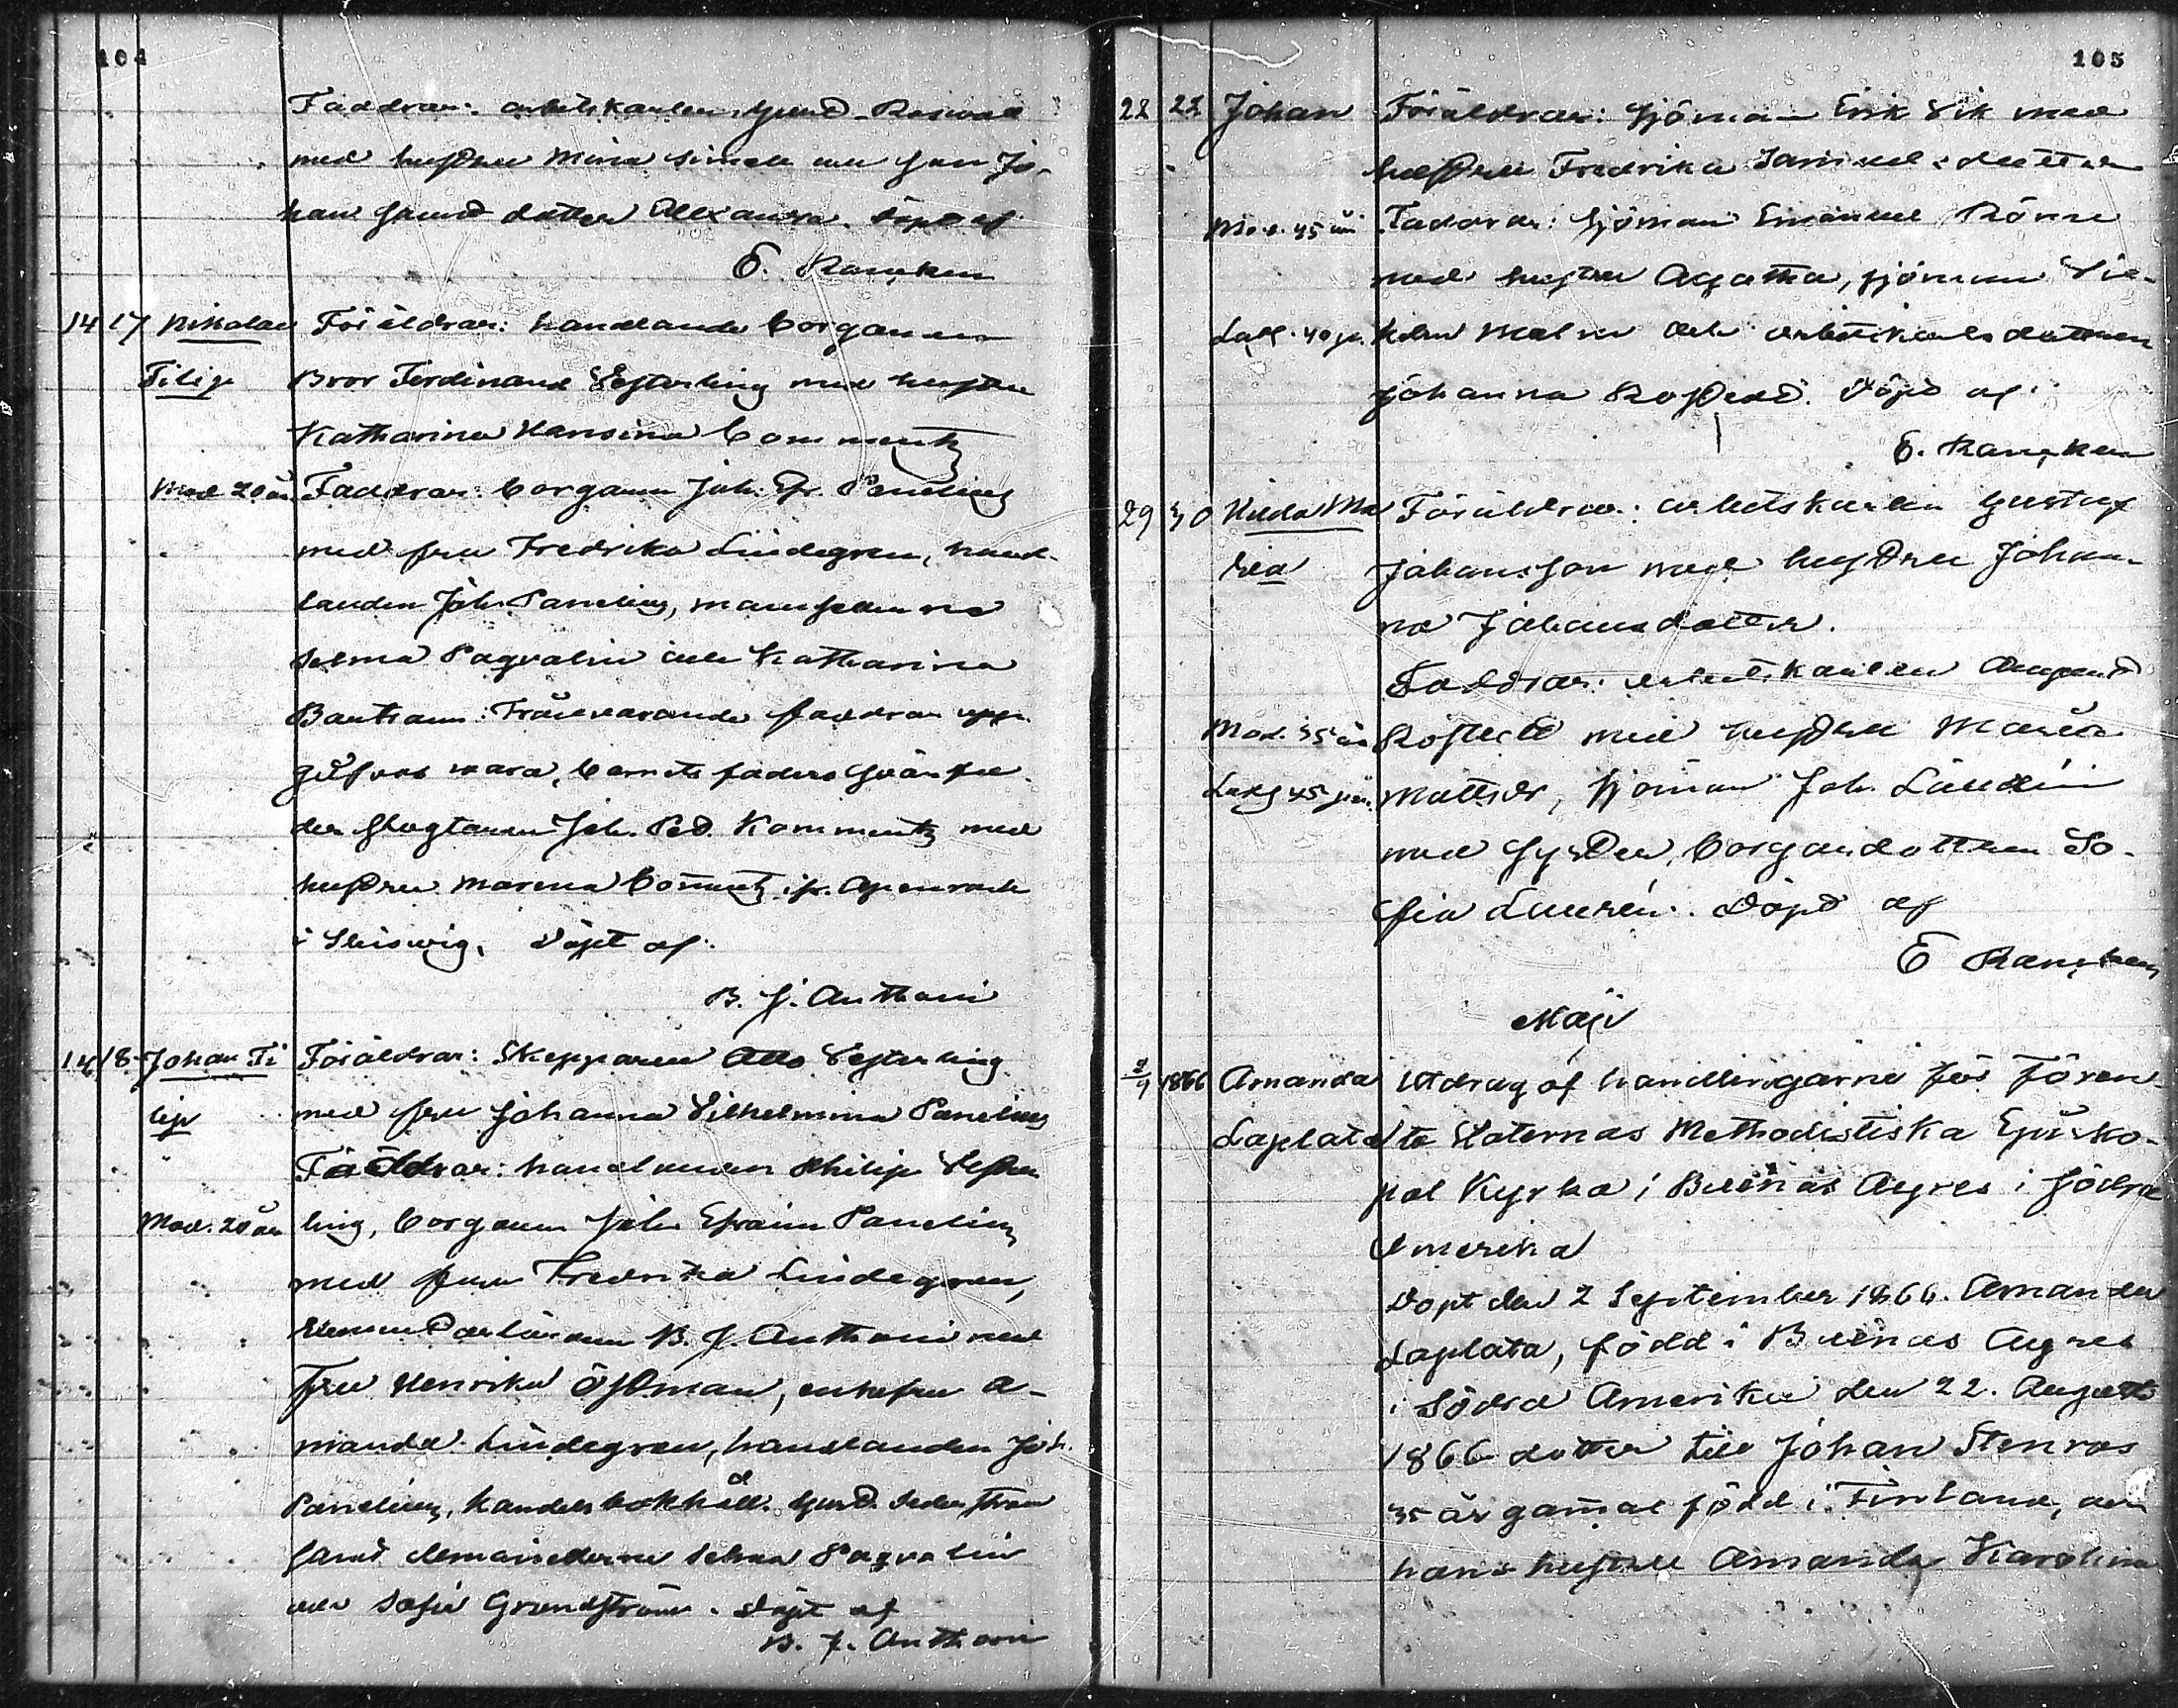 104
Faddrar: arbetskarlen Gust. Roswall
med hustru Mina Simola och son Jo-
han samt dotter Alexandra. Döpt af
E. Rancken
14 17 Nikolai Föräldrar: handlande borgaren
Filip Bror Ferdinand Westerling med hustru
Katharina Hansina Commentz
Mod 20 år Faddrar: borgaren Joh. Efr. Panelius
med fru Fredrika Lindegren, hand-
landen Joh. Panelius, mamsellerna
Selma Pagvalin och Katharina
Bantram: Frånvarande faddrar upp-
gifvas vara, barnets faders
slagtaren Joh. Ped. Kommentz med
hustru Marina Commentz ifr. Apenrade
i Sleswig. Döpt af
B. J. Anthoni
14 18 Johan Fi Föräldrar: Skepparen Otto Westerling
lip med fru Johanna Vilhelmina Panelius
Faddrar: handlanden Philip Wester
Mod. 20 år ling, borgaren Joh. Efraim Panelius
med fru Fredrika Lindegren,
B. J. Anthoni med
Fru Henrika Östman, enkefru A-
manda Lindegren, handlanden Joh.
Panelius, handelsbokhåll. Gust. Sederström
samt demoisellerna Selma Pagvalin
och Sofie Grundström. Döpt af
B. J. Anthoni
105
22 22 Johan Föräldrar: Sjöman Erik Vik med
hustru Fredrika Samuelsdotter
Mod. 45 år Faddrar: Sjöman Emanuel Rönn
med hustru Agatha, sjöman Vil-
Laxf. 40 p. helm Malm och arbetskarlsdottren
Johanna Rostedt. Döpt af
E. Rancken
29 30 Hilda Ma Föräldrar: arbetskarlen Gustaf
ria Johansson med hustru Johan-
na Johansdotter.
Faddrar: arbetskarlen August
Mod. 35 år Rostedt med hustru Maria
Laxf 45 p. Mattsdr, sjöman Joh. Lundén
med syster, borgaredottren So-
fia Lundén. Döpt af
E Rancken
Maji
2/9 1866 Amanda Utdrag af handlingarne för Fören-
Laplata ta Staternas Methodistiska Episko-
pal Kyrka i Buenas Ayres i Södra
Amerika
Döpt den 2 September 1866. Amanda
Laplata, född i Buenas Ayres
i Södra Amerika den 22. Augusti
1866 dotter till Johan Stenros
35 år gammal född i Finland, och
hans hustru Amanda Karolina